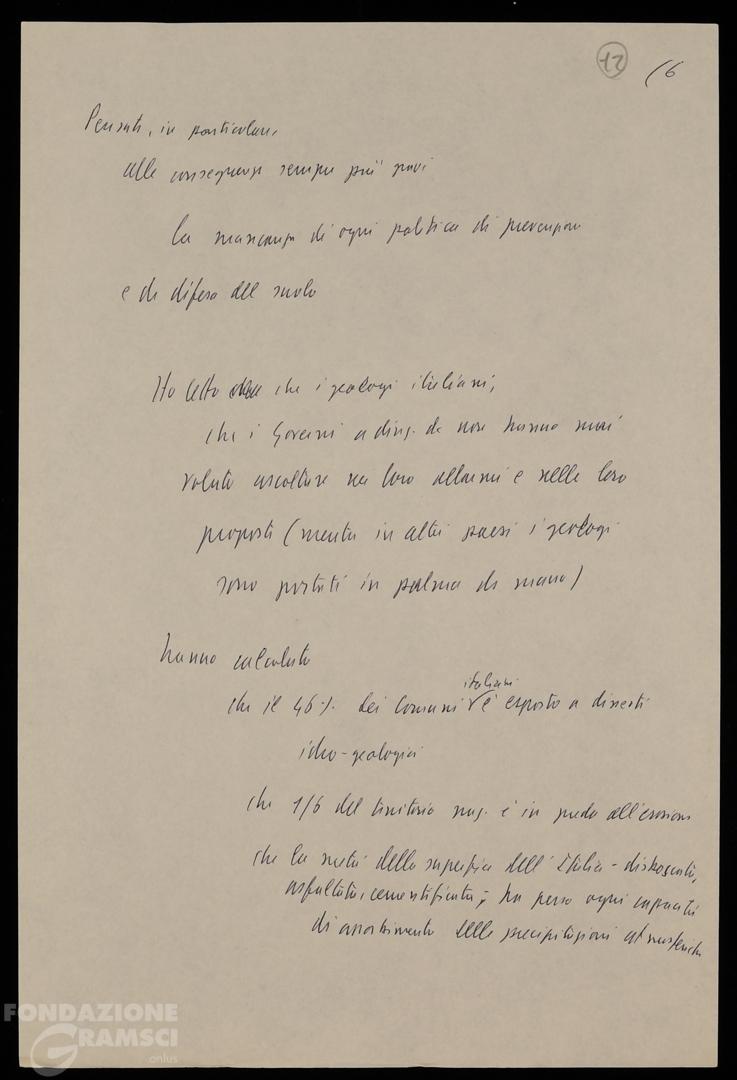 12
16
Pensate, in particolare,
alle conseguenze sempre più gravi
la mancanza di ogni politica di prevenzione
e di difesa del suolo
Ho letto che i geologi italiani,
che i Governi a direz. dc non hanno mai
voluto ascoltare nei loro allarmi e nelle loro
proposte (mentre in altri paesi i geologi
sono portati in palma di mano)
hanno calcolato
che il 46% dei Comuni italiani è esposto a dissesti
idro-geologici
che 1/6 del territorio naz. è in preda all'erosione
che la metà della superficie dell'Italia - disboscata,
asfaltata, cementificata - ha perso ogni capacità
di assorbimento delle precipitazioni atmosferiche
FONDAZIONE
GRAMSCI
onlus